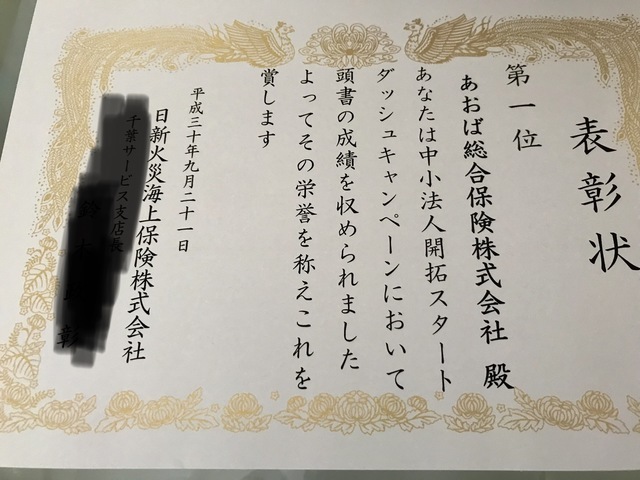 表彰状
第一位
あおば総合保険株式会社 殿
あなたは中小法人開拓スタート
ダッシュキャンペーンにおいて
頭書の成績を収められました
よってその栄誉を称えこれを
賞します
平成三十年九月二十一日
日新火災海上保険株式会社
千葉サービス支店長